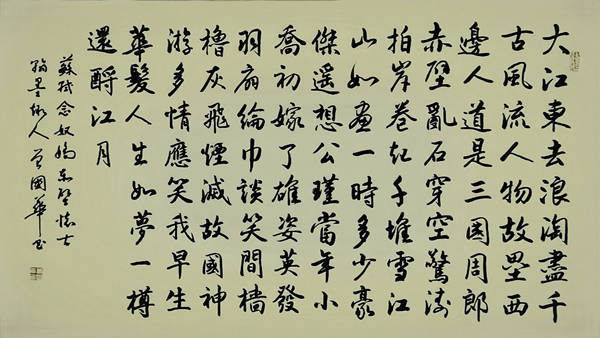 大江東去浪淘盡千
古風流人物故壘西
邊人道是三国周郎
赤壁亂石穿空驚濤
拍岸卷起千堆雪江
山如畫一時多少豪
傑遙想公瑾當年小
喬初嫁了雄姿英發
羽扇綸巾談笑間檣
櫓灰飛煙滅故國神
游多情應笑我早生
華髮人生如夢一樽
還酹江月
蘇軾念奴嬌赤壁懷古
翰墨人國華書